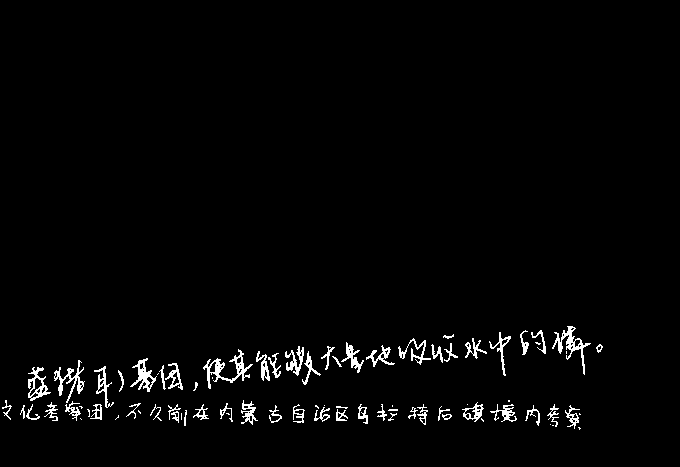 蓝猪耳）基因，使其能够大量地吸收水中的磷。
文化考察团”，不久前在内蒙古自治区乌拉特后旗境内考察